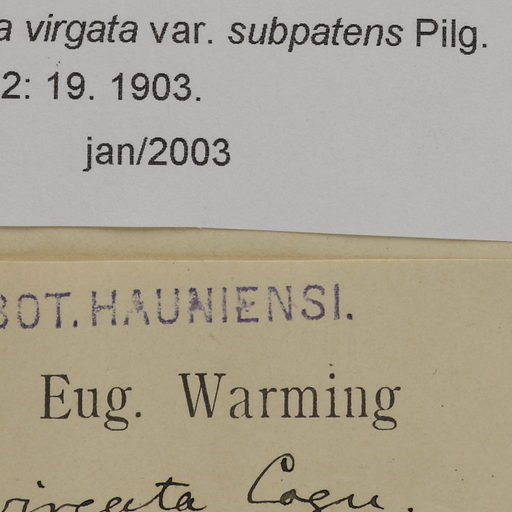 a virgata var. subpatens Pilg.
2: 19. 1903.
jan/2003
BOT. HAUNIENSI.
Eug. Warming
virgata Cogn.